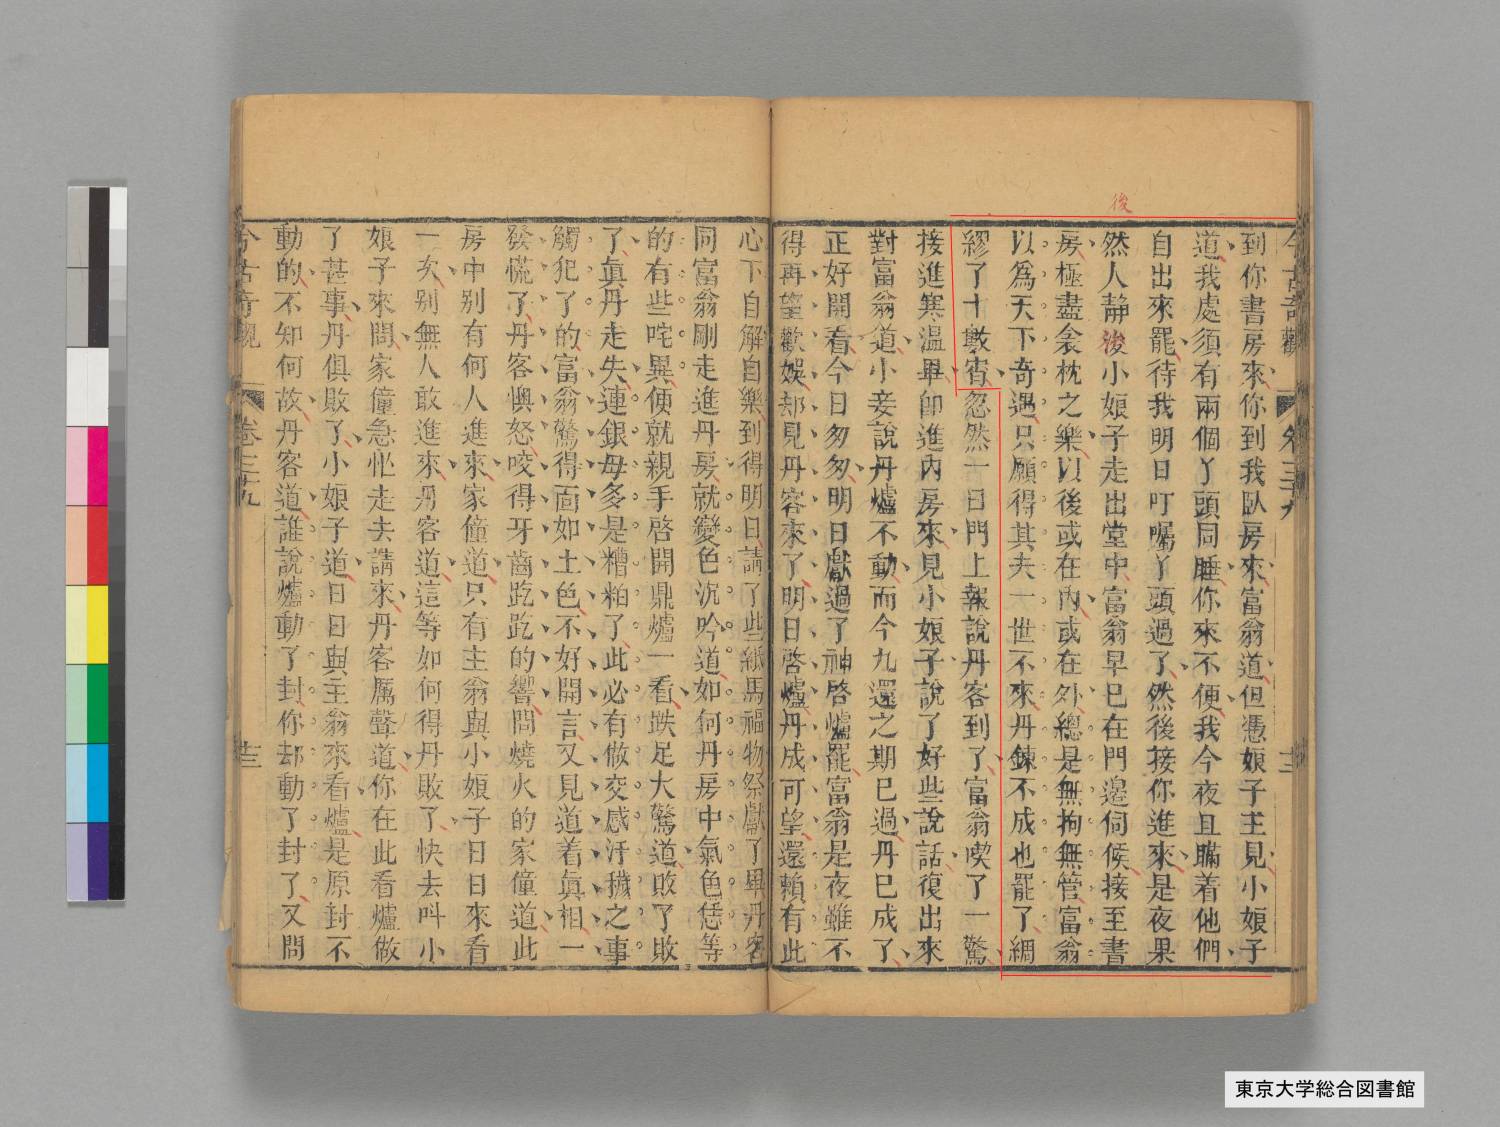 後
今古奇觀 卷三十九
到你書房來你到我臥房來富翁道但憑娘子主見小娘子
道我處須有兩個丫頭同睡你來不便我今夜且瞞着他們
自出來罷待我明日叮囑丫頭過了然後接你進來是夜果
然人静後小娘子走出堂中富翁早已在門邊伺候接至書
房極盡衾枕之樂以後或在內或在外總是無拘無管富翁
以爲天下奇遇只願得其夫一世不來丹鍊不成也罷了綢
繆了十數宵忽然一日門上報說丹客到了富翁喫了一驚
接進寒温畢卽進內房來見小娘子說了好些說話復出來
對富翁道小妾說丹爐不動而今九還之期已過丹已成了
正好開看今日匆匆明日獻過了神啓爐罷富翁是夜雖不
得再望歡娛却見丹客來了明日啓爐丹成可望還賴有此
心下自解自樂到得明日請了些紙馬福物祭獻了畢丹客
同富翁剛走進丹房就變色沉吟道如何丹房中氣色恁等
的有些咤異便就親手啓開鼎爐一看跌足大驚道敗了敗
了眞丹走失連銀母多是糟粕了此必有做交感汙穢之事
觸犯了的富翁驚得面如土色不好開言又見道着眞相一
發慌了丹客懊怒咬得牙齒趷趷的響問燒火的家僮道此
房中别有何人進來家僮道只有主翁與小娘子日日來看
一次别無人敢進來丹客道這等如何得丹敗了快去叫小
娘子來問家僮急忙走去請來丹客厲聲道你在此看爐做
了甚事丹俱敗了小娘子道日日與主翁來看爐是原封不
動的不知何故丹客道誰說爐動了封你却動了封了又問
今古奇觀 卷三十九 十三
東京大学総合図書館